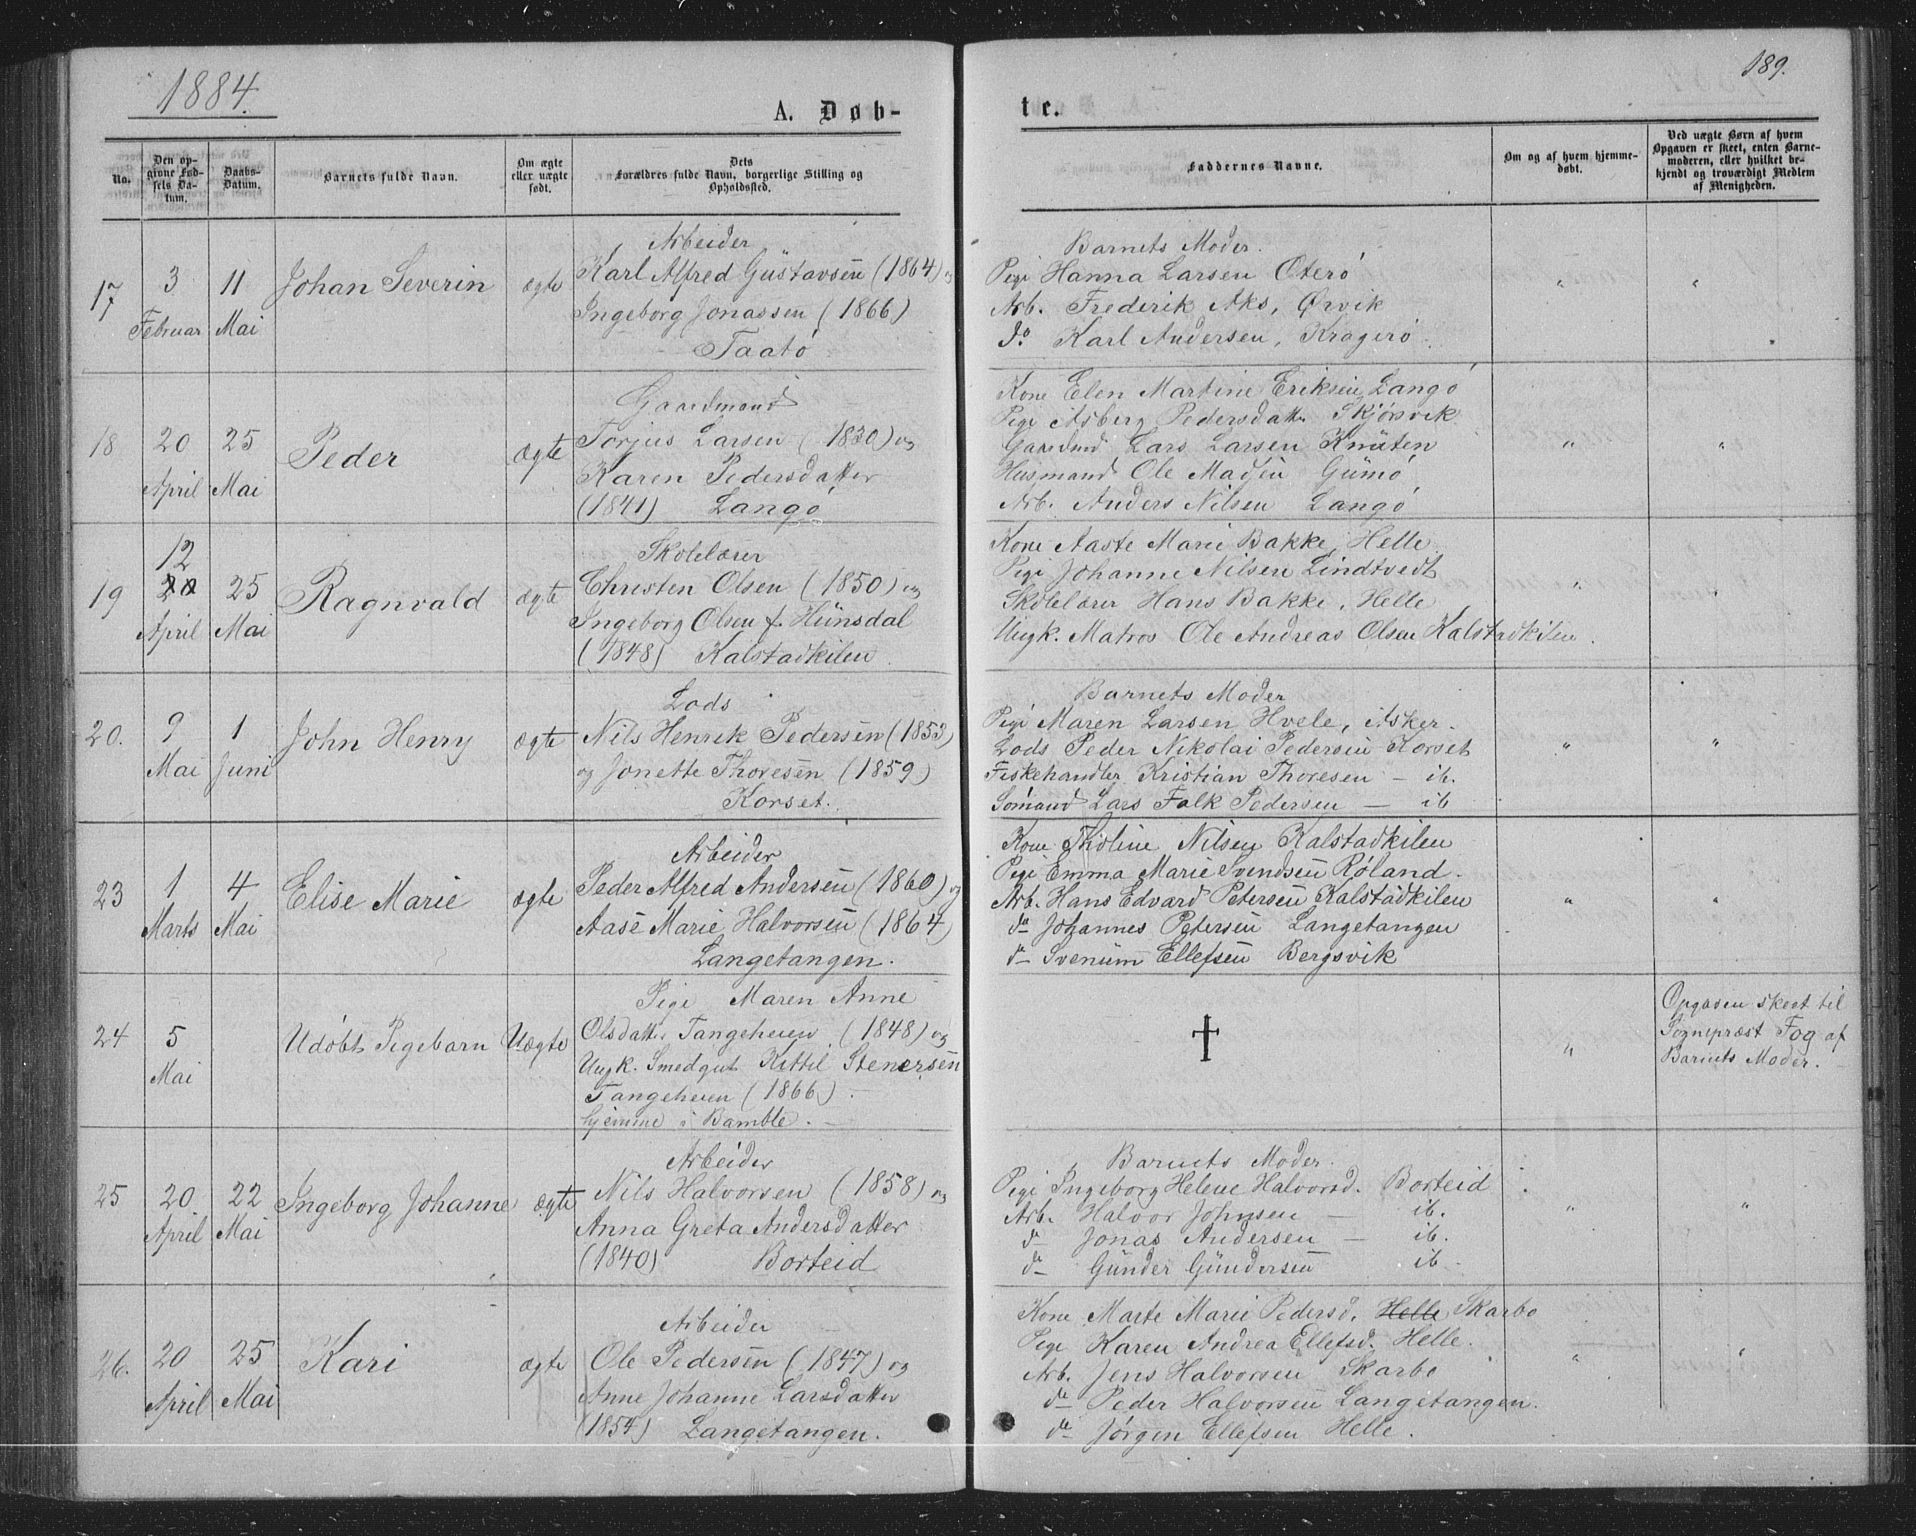 1884.
189.
A. Døb-
te.
No.
Den op-
givne Fød-
sels Da-
tum.
Daabs-
Datum.
Barnets fulde Navn.
Om ægte
eller uægte
født.
Dets
Forældres fulde Navn, borgerlige Stilling og
Opholdssted.
Faddernes Navne.
Om og af hvem hjemme-
døbt.
Ved uægte Børn af hvem
Opgaven er skeet, enten Barne-
moderen, eller hvilket be-
kjendt og troværdigt Medlem
af Menigheden.
17
3
Februar
11
Mai
Johan Severin
ægte
Arbeider
Karl Alfred Gustavsen (1864) og
Ingeborg Jonassen (1866)
Taatø
Barnets Moder.
Pige Hanna Larsen Oterø
Arb. Frederik Aks, Ørvik
do Karl Andersen, Kragerø
"
"
18
20
April
25
Mai
Peder
ægte
Gaardmand
Torjus Larsen (1830) og
Karen Pedersdatter
(1841) Langø
Kone Elen Martine Eriksen, Langø
Pige Asberg Pedersdatt. Skjørsvik
Gaardmd Lars Larsen Knuten
Husmand Ole Madsen Gumø
Arb. Anders Nilsen Langø
"
"
19
12
20
April
25
Mai
Ragnvald
ægte
Skolelærer
Christen Olsen (1850) og
Ingeborg Olsen f. Hunsdal
(1848) Kalstadkilen
Kone Aaste Marie Bakke, Helle
Pige Johanne Nilsen Lindtvedt
Skolelærer Hans Bakke, Helle
Ungk. Matros Ole Andreas Olsen Kalstadkilen.
"
"
20.
9
Mai
1
Juni
John Henry
ægte
Lods
Nils Henrik Pedersen (1853)
og Jonette Thoresen (1859)
Korset.
Barnets Moder
Pige Maren Larsen Hvele, Asker.
Lods Peder Nikolai Pedersen Korset
Fiskehandler Kristian Thoresen — ib.
Sømand Lars Falk Pedersen — ib
"
"
23
1
Marts
4
Mai
Elise Marie
ægte
Arbeider
Peder Alfred Andersen (1860) og
Aase Marie Halvorsen (1864)
Langetangen.
Kone Thioline Nilsen Kalstadkilen
Pige Emma Marie Svendsen Røland.
Arb. Hans Edvard Petersen Kalstadkilen
do Johannes Petersen Langetangen
do Svenum Ellefsen Bergsvik
"
"
24
5
Mai
Udøbt Pigebarn
Uægte
Pige Maren Anne
Olsdatt. Tangeheien (1848) og
Ungk. Smedgut Kittil Stenersen
Tangeheien (1866).
hjemme i Bamble.
†
"
Opgaven skeet til
Sognepræst Fog af
Barnets Moder.
25
20.
April
22
Mai
Ingeborg Johanne
ægte
Arbeider
Nils Halvorsen (1858) og
Anna Greta Andersdatter
(1840) Borteid
Barnets Moder.
Pige Ingeborg Helene Halvorsd. Borteid
Arb. Halvor Johnsen — ib.
do Jonas Andersen — ib.
do Gunder Gundersen ib.
"
"
26.
20
April
25
Mai
Kari
ægte
Arbeider
Ole Pedersen (1847) og
Anne Johanne Larsdatter
(1854) Langetangen.
Kone Marte Marie Pedersd. Helle Skarbo
Pige Karen Andrea Ellefsd. Helle.
Arb. Jens Halvorsen Skarbo
do Peder Halvorsen Langetangen.
do Jørgen Ellefsen Helle.
"
"